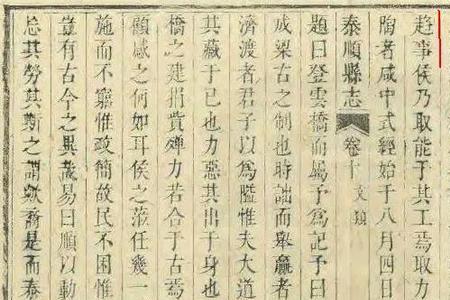 趋事侯乃取能于其工焉取力
陶者咸中式經始于八月四日
泰順縣志 卷十 文類
題曰登雲橋而屬予爲記予曰
成梁古之制也時詘而舉羸者
濟渡者君子以爲隘惟夫大道
其藏于己也力惡其出于身也
橋之建捐貲殫力若合于古焉
願咸之何如耳侯之蒞任幾一
施而不窮惟政簡故民不困惟
豈有古今之異哉易曰順以動
忘其勞其斯之謂歟裔是而泰